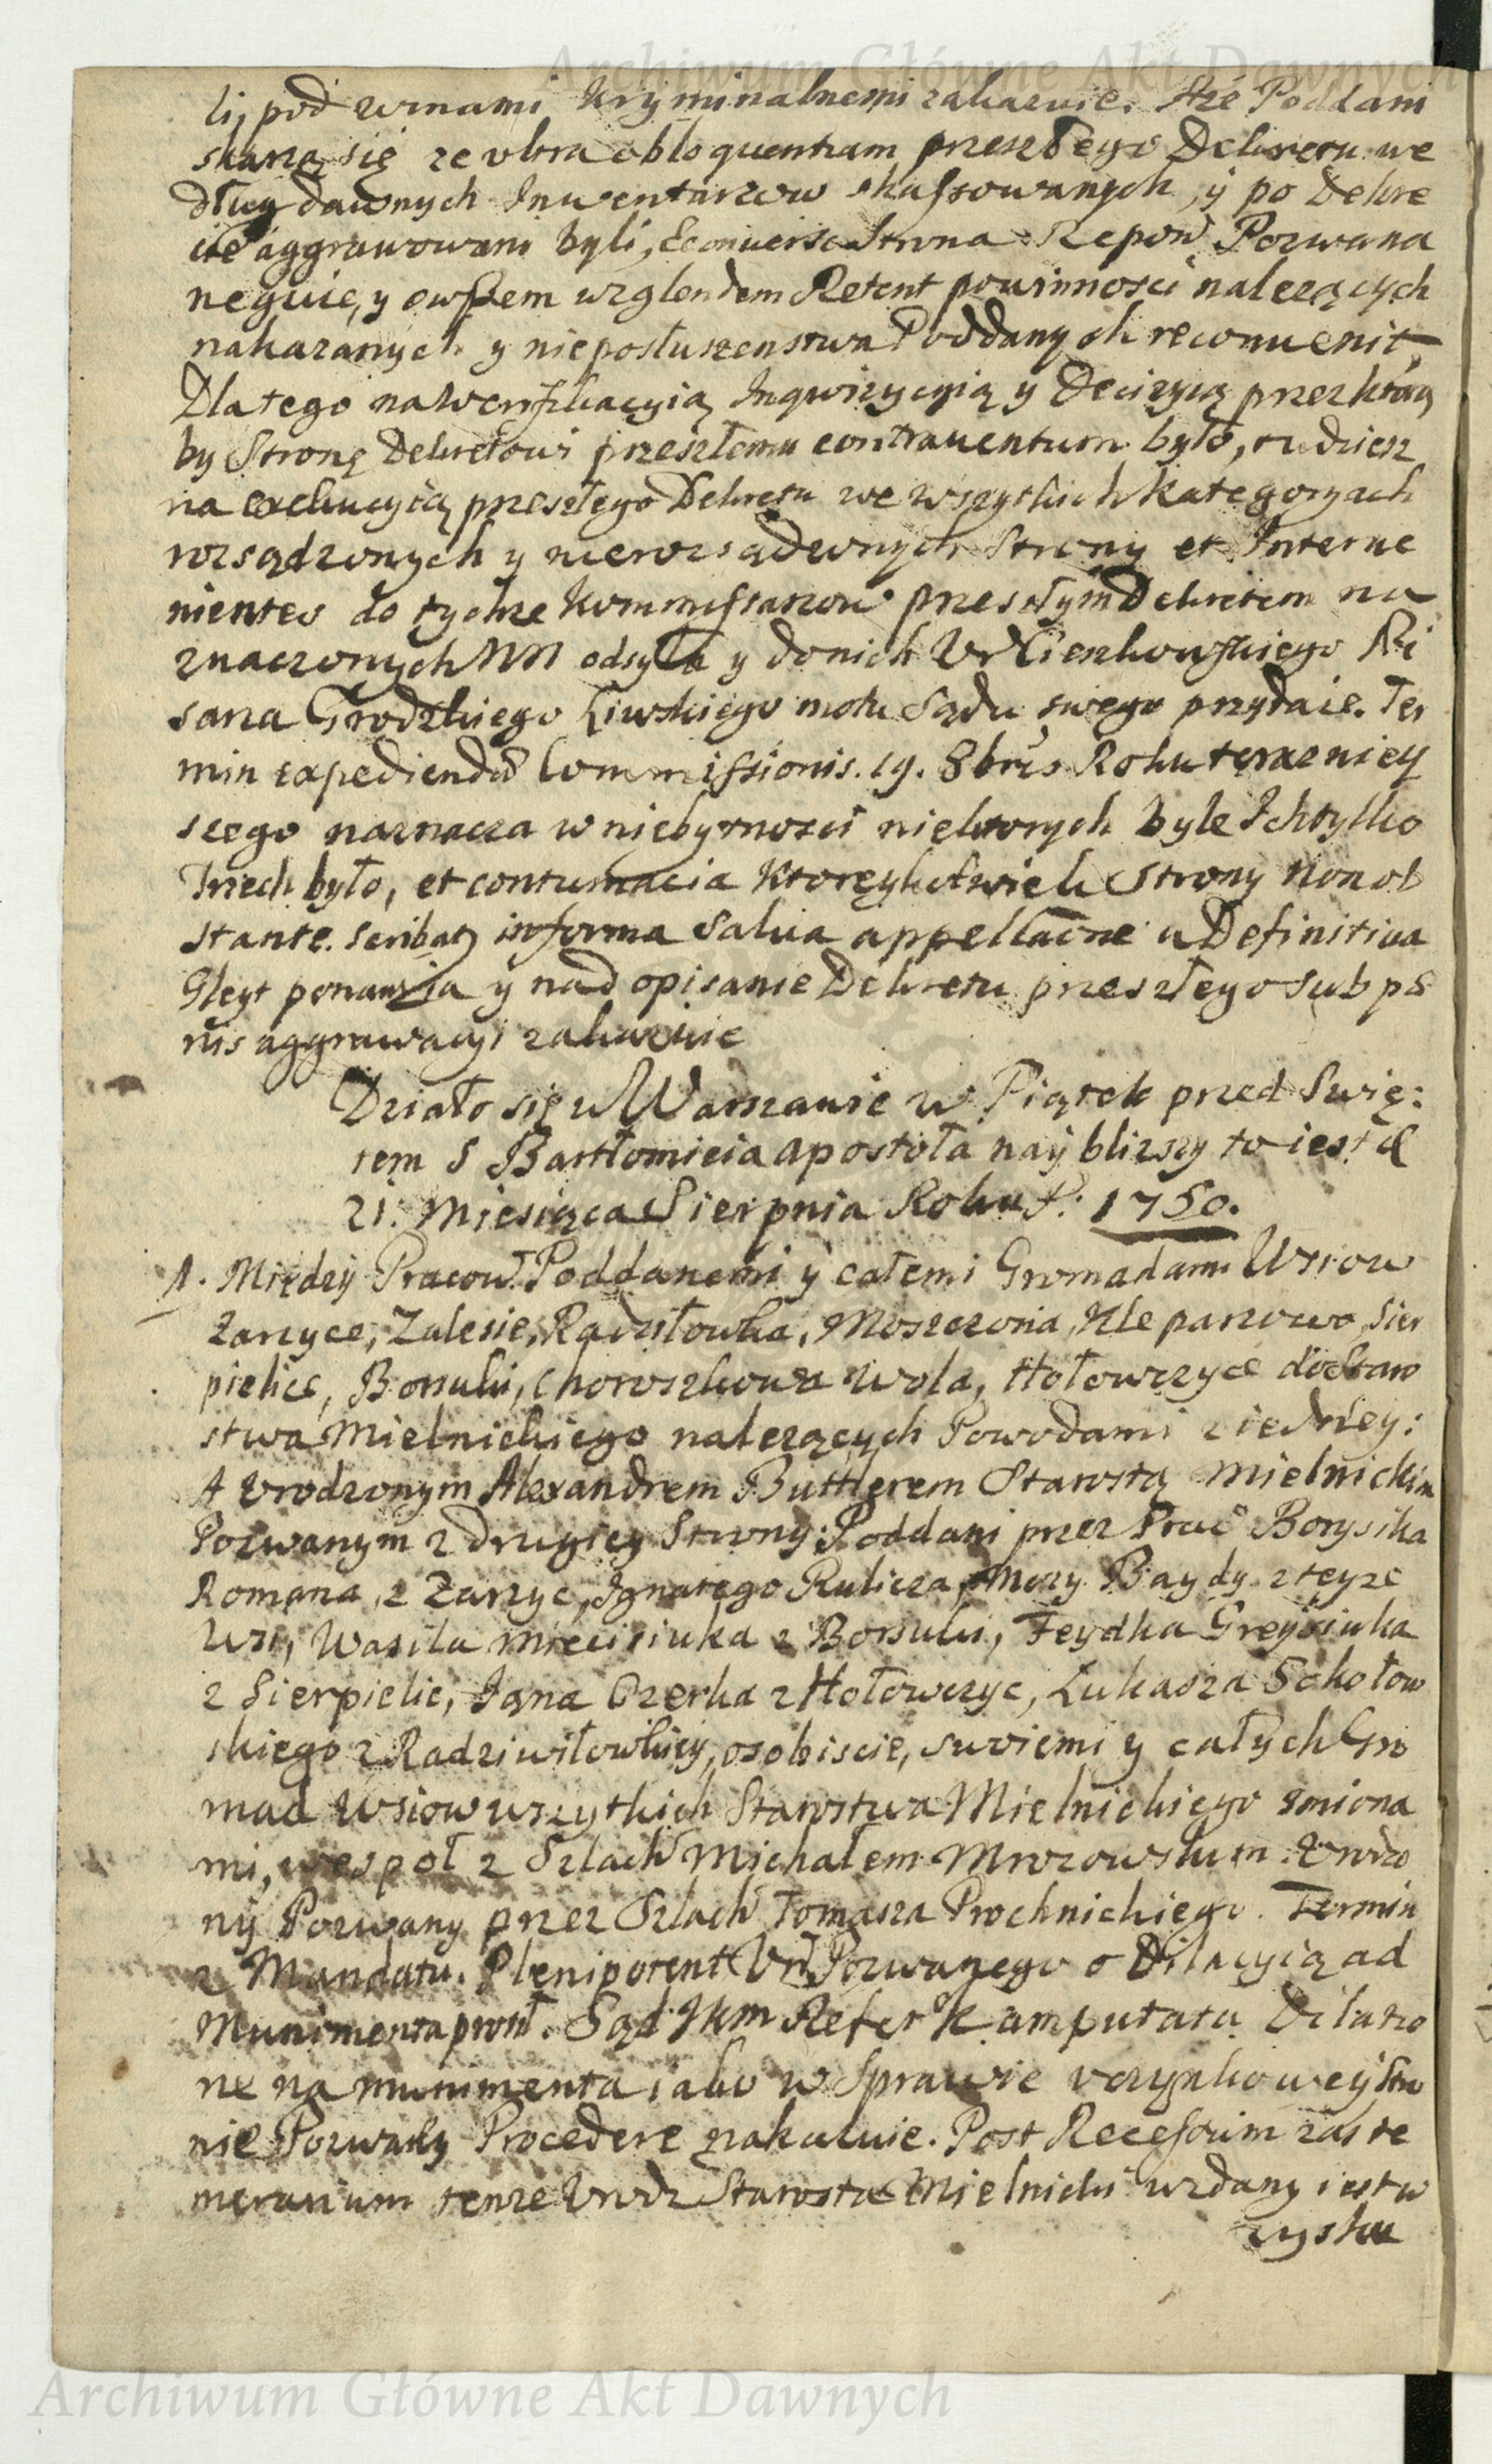 Archiwum Główne Akt Dawnych
li, pod winami kryminalnemi zakazuie. Aże Poddani
skarzą się ze vltra obloquentiam przeszłego Dekretu we
dług dawnych Inwentarzow skassowanych, y po Dekre
cie aggrawowani byli, Econuerso Strona Pozwana
neguie, y owszem wzglendem Retent powinnosci nalezących
nakazanych y nieposłuszenstwa Poddanych reconuenit,
Dlatego na Weryfikacyią Inqwizycyią y Decizyią przez ktorą
by Stronę Dekretowi przeszłemu contrauentum było, tudziesz
na exekucyią przeszłego Dekretu we wszytkich kategoryach
rozsądzonych y nierozsądzonych Strony et Interue
nientes do tychze Kommissarzow przeszłym Dekretem na
znaczonych NN odsyła y donich Vr Cieszkowskiego Pi
sarza Grodzkiego Liwskiego motu Sądu swego przydaie. Ter
min expediendae Commissionis. 19. 8bris Roku teraznieÿ
szego naznacza w niebytnosci niektorych byle Ich tylko
Trzech było, et contumacia ktoreykolwiek Strony non ob
stante. Scribat in forma Salua appellaōne a Definitiua
Gleyt ponawia y nad opisanie Dekretu przeszłego sub pae
nis aggrawacyi zakazuie
Działo się w Warszawie w Piątek przed Swię:
tem S Bartłomieia apostoła naÿ blizszy to iest d
21. Miesiąca Sierpnia Roku P. 1750.
1. Międzÿ Pracow. Poddanemi ÿ całemi Gromadami Wsiow
Zarzyce, Zalesie, Radziłowka, Moszczona, Klepaczowo, Sier
pielice, Borsuki, Choroszkowa Wola, Hołowczyce do Staro
stwa Mielnickiego nalezących Powodami z iedney:
A Vrodzonym Alexandrem Buttlerem Starostą Mielnickim
Pozwanym z drugiey Strony: Poddani przez Prac Borysika
Romana z Zarzyc, Ignatego Kulicza, Mozy Baydy z teyze
Wsi, Wasila Mieciuka z Borsuki, Feydka Greysiuka
z Sierpielic, Jana Ozerka z Hołowczyc, Łukasza Sokołow
skiego z Radziwiłowkiey, osobiscie, swoiemi y całych Gro
mad Wsiow wszytkich Starostwa Mielnickiego imiona
mi, wespoł z Szlach Michałem Mrozowskim. Vrodzo
nÿ Pozwany przez Szlach Tomasza Prochnickiego. Termin
z Mandatu. Plenipotent Vr Pozwanego o Dilacyią ad
Munimenta prosił. Sąd JKM Refer K amputata Dilatio
ne na munimenta iako w Sprawie vczynkoweÿ Stro
nie Pozwaney Procedere nakazuie. Post Recessum zas te
merarium tenze Vrodz Starosta Mielnicki wzdany iest w
zysku
Archiwum Główne Akt Dawnych